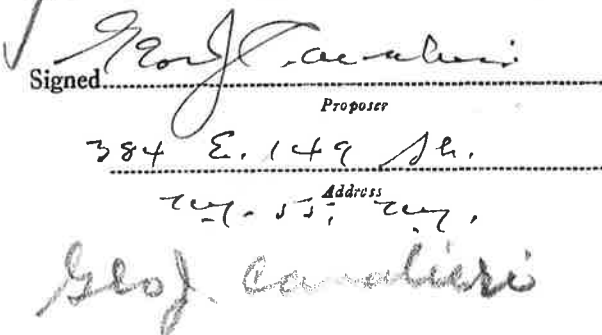 Signed Geo J Cavalieri
Proposer
384 E. 149 St.
Address
N.Y. 55, N.Y.
Geo J. Cavalieri